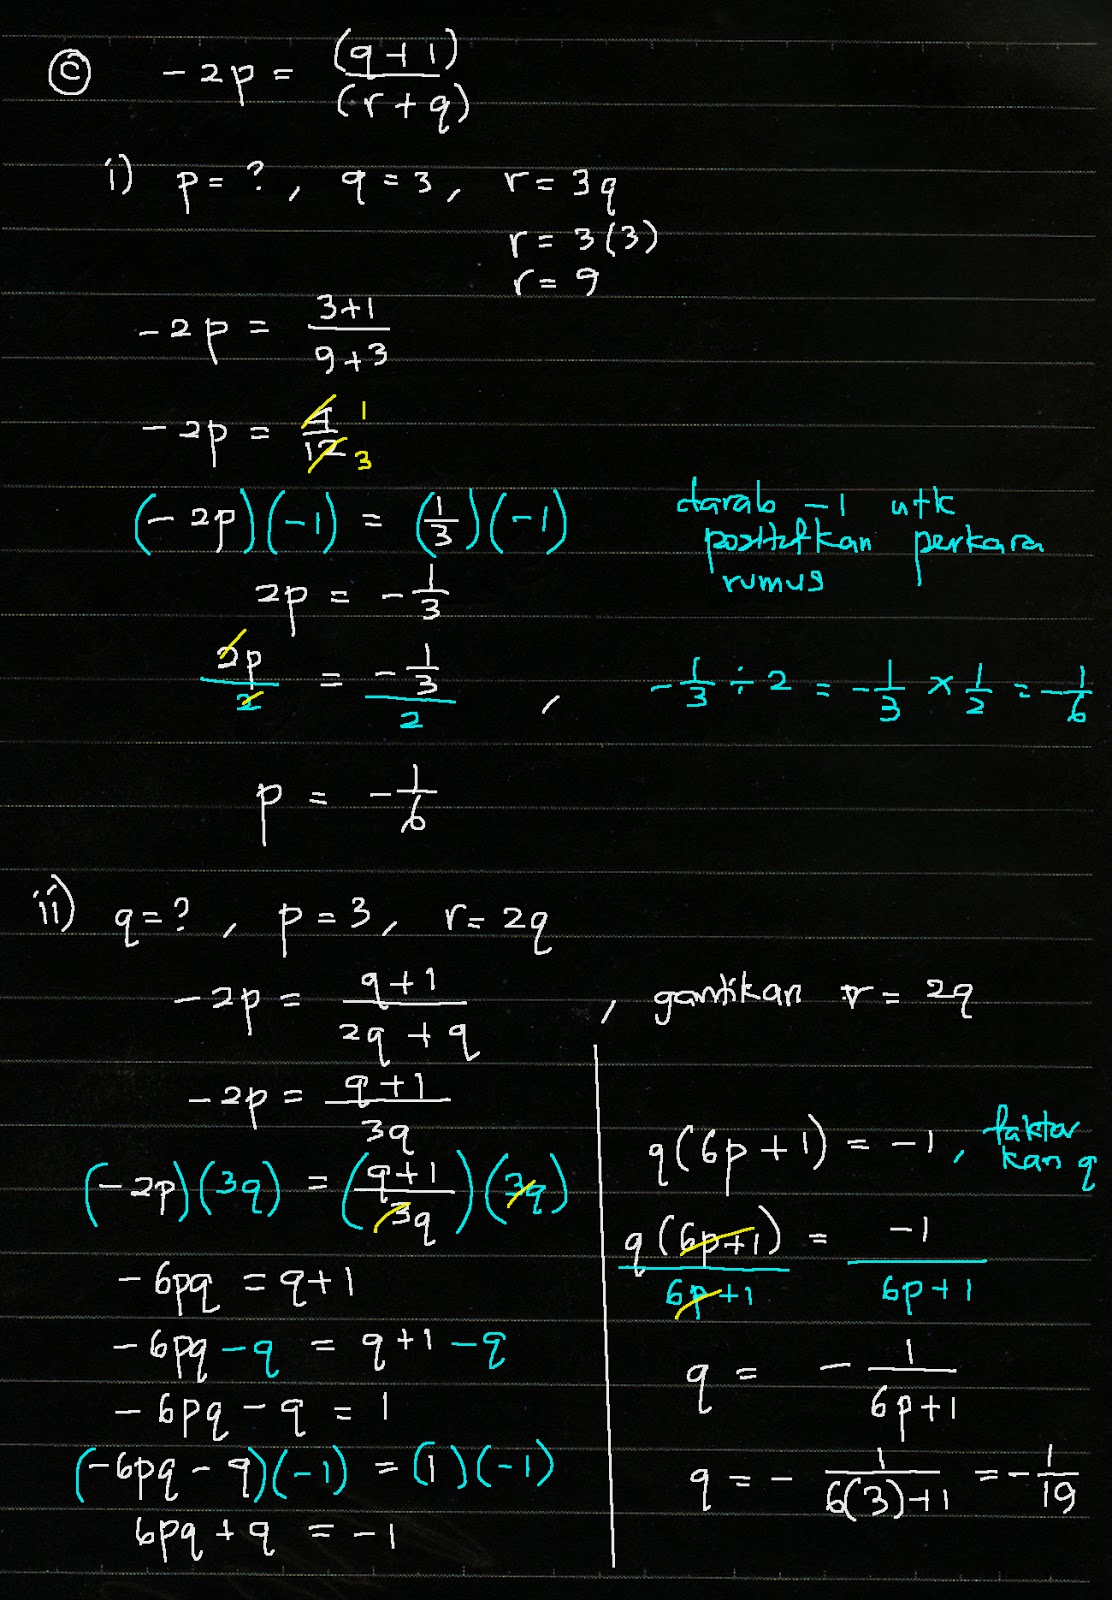 ⓒ -2p = (q+1)/(r+q)
i) p = ? , q = 3, r = 3q
r = 3(3)
r = 9
-2p = (3+1)/(9+3)
-2p = 4/12 1 3
(-2p)(-1) = (1/3)(-1) darab -1 utk
positifkan perkara
rumus
2p = -1/3
2p/2 = (-1/3)/2 , -1/3 ÷ 2 = -1/3 × 1/2 = -1/6
p = -1/6
ii) q = ? , p = 3, r = 2q
-2p = (q+1)/(2q + q) , gantikan r = 2q
-2p = (q+1)/3q
(-2p)(3q) = ((q+1)/3q)(3q)
-6pq = q+1
-6pq - q = q+1 - q
-6pq - q = 1
(-6pq - q)(-1) = (1)(-1)
6pq + q = -1
q(6p+1) = -1, faktor
kan q
q(6p+1)/(6p+1) = -1/(6p+1)
q = - 1/(6p+1)
q = - 1/(6(3)+1) = -1/19